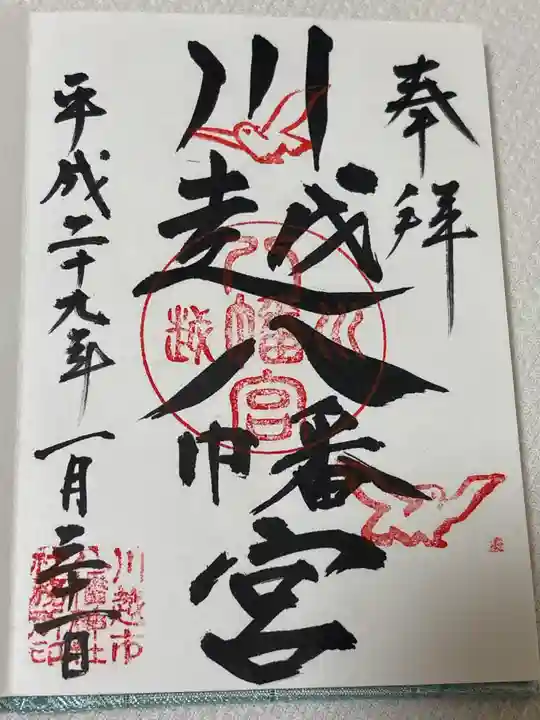 奉拝
川越八幡宮
平成二十九年一月二十一日
川越
八幡宮
川越市